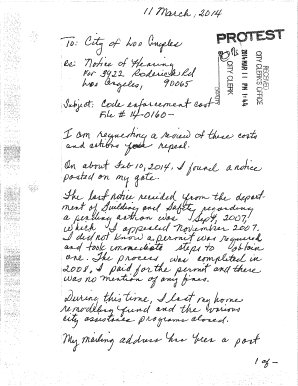 11 March, 2014
PROTEST
To: City of Los Angeles
Re: Notice of Hearing
For 3922 Roderick Rd
Los Angeles, 90065
RECEIVED
CITY CLERK'S OFFICE
2014 MAR 11 PM 1:44
CITY CLERK
BY
DEPUTY
Subject: Code enforcement cost
File # 14-0160-
I am requesting a review of these costs
and actions repeal.
On about Feb 10, 2014, I found a notice
posted on my gate.
The last notice recieved from the depart-
ment of Building and Safety regarding
a pending action was Sept, 2007,
which I appealed November 2007.
I did not know a permit was required
and took immediate steps to obtain
one. The process was completed in
2008, I paid for the permit and there
was no mention of any fines.
During this time, I lost my home
remodeling fund and the various
city assistance programs closed.
My mailing address has been a post
1 of -